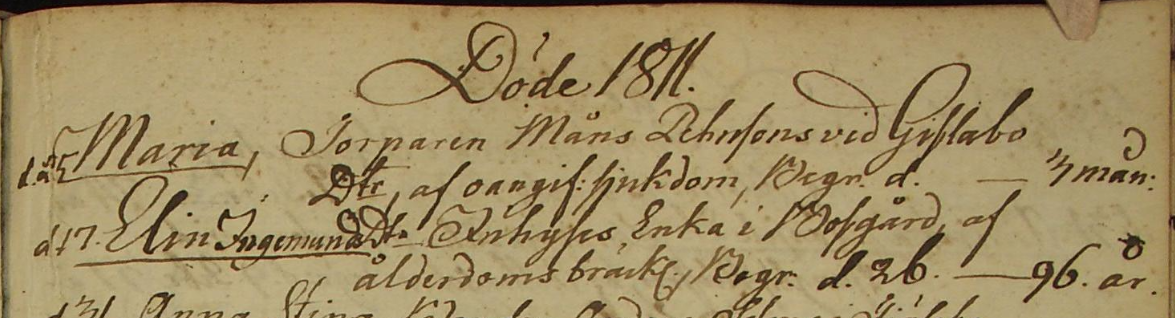 Döde 1811.
Maria, Torparen Måns Pehrsons vid Gislabo
Dtr, af oangif: sjukdom, Begr. d. — 3/4 mån:
d 17. Elin Ingemunds Dtr Inhyses Enka i Bosgård, af
ålderdoms bräckl., Begr. d. 26. — 96. år.
Anna Stina